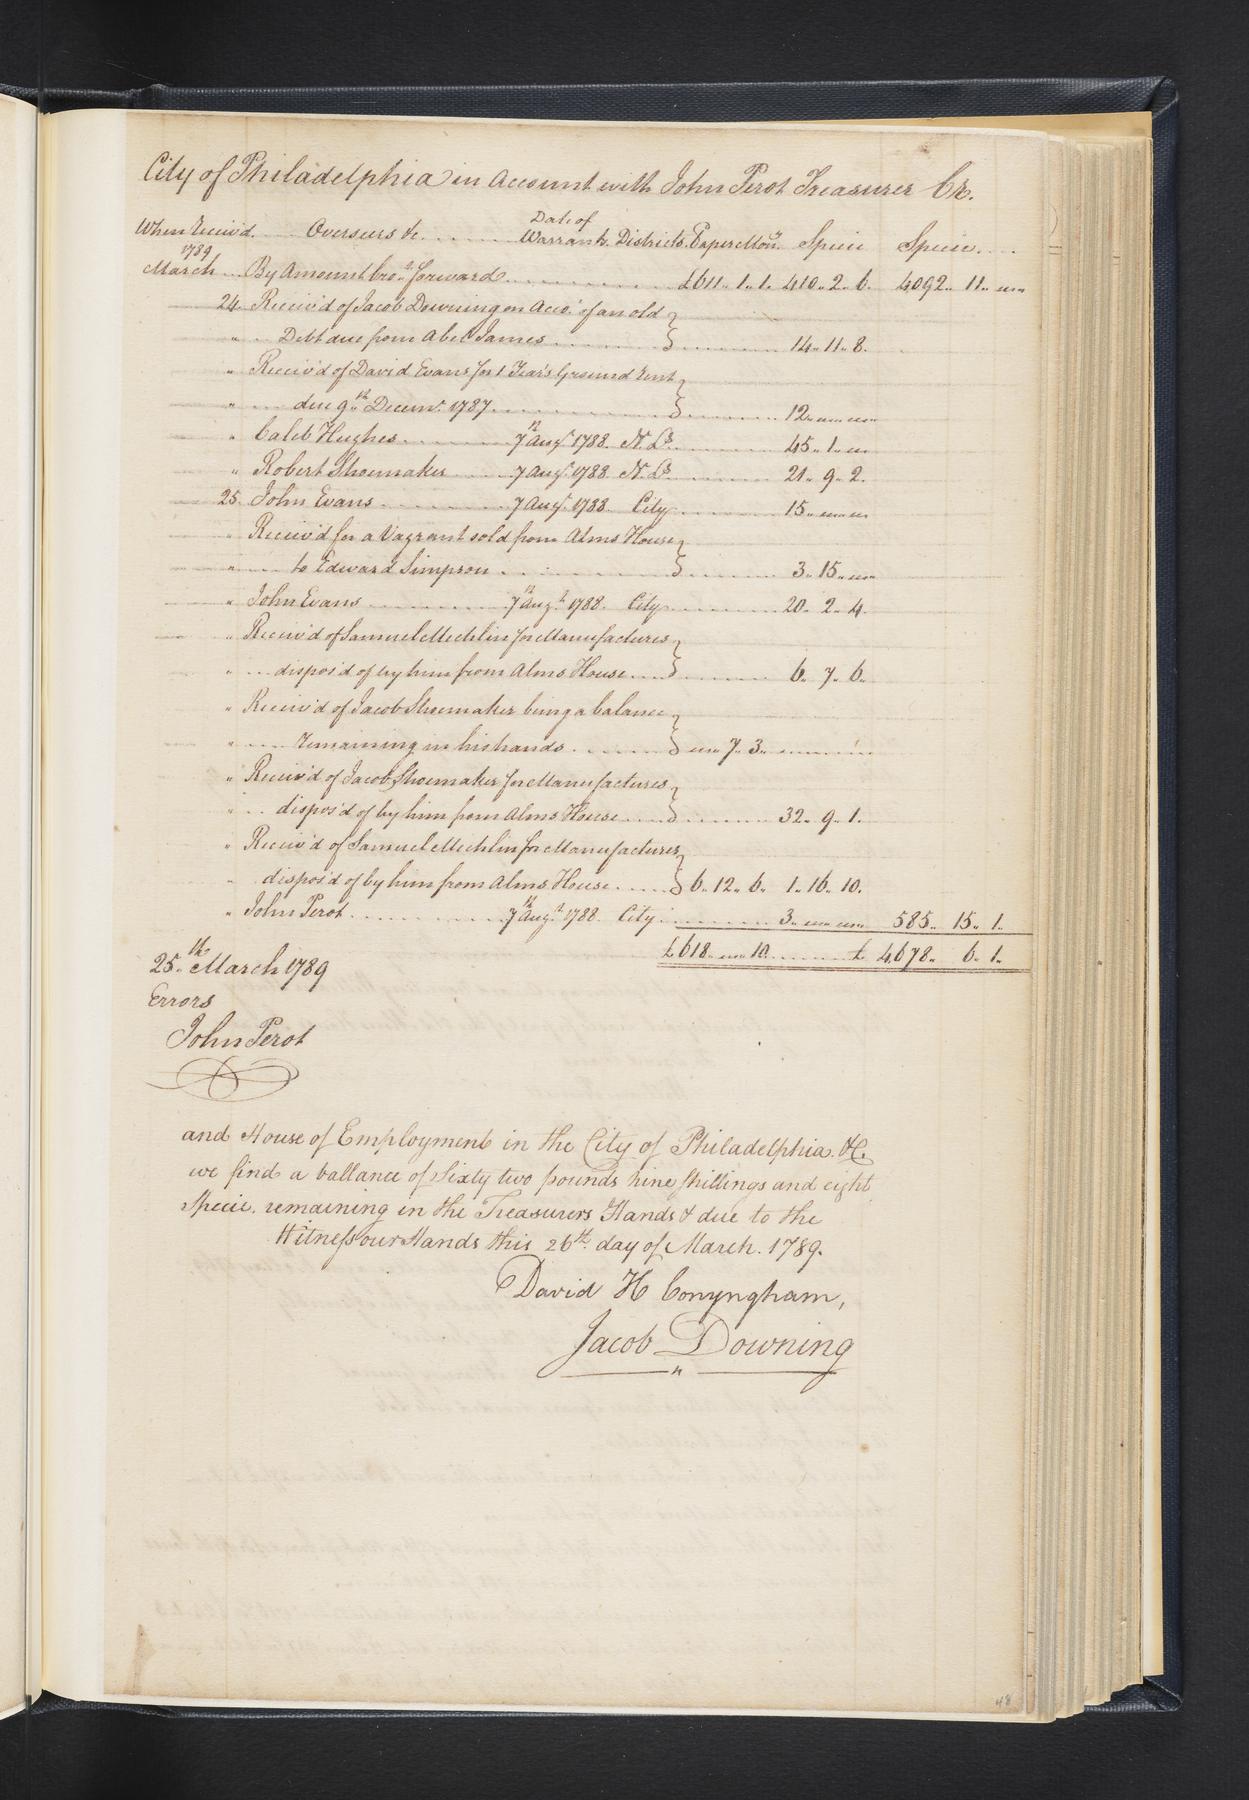 City of Philadelphia in Account with John Perot Treasurer Cr.
When Receiv'd. Overseers &c. Date of Warrants. Districts. Paper Mony. Specie Specie.
1789
March By Amount bro.t forward £611.. 1.. 1. 410.. 2.. 6. 4092.. 11.. "
24. Receiv'd of Jacob Downing on Acco.t of an old
" Debt due from Abel James 14.. 11.. 8.
" Receiv'd of David Evans for 1 Year's Ground Rent
" due 9th Decemr. 1787 12.. " "
" Caleb Hughes 7th Augt. 1788. N. Ls. 45.. 1.. "
" Robert Shoemaker 7 Augt. 1788. N. Ls. 21.. 9.. 2.
25. John Evans 7 Augt. 1788. City 15.. " "
" Receiv'd for a Vagrant sold from Alms House
" to Edward Simpson 3.. 15.. "
" John Evans 7th Augt. 1788. City 20.. 2.. 4.
" Receiv'd of Samuel Mechlin for Manufactures
" dispos'd of by him from Alms House 6.. 7.. 6.
" Receiv'd of Jacob Shoemaker being a balance
" remaining in his hands " 7.. 3..
" Receiv'd of Jacob Shoemaker for Manufactures
" dispos'd of by him from Alms House 32.. 9.. 1.
" Receiv'd of Samuel Mechlin for Manufactures
" dispos'd of by him from Alms House 6.. 12.. 6. 1.. 16.. 10.
" John Perot 7th Augt. 1788. City 3.. " " 585.. 15.. 1.
£618.. " 10. £ 4678.. 6.. 1.
25.th March 1789
Errors
John Perot
and House of Employment in the City of Philadelphia. &c
we find a ballance of Sixty two pounds nine shillings and eight
Specie. remaining in the Treasurers Hands & due to the
Witness our Hands this 26th. day of March. 1789.
David H Conyngham,
Jacob Downing
48